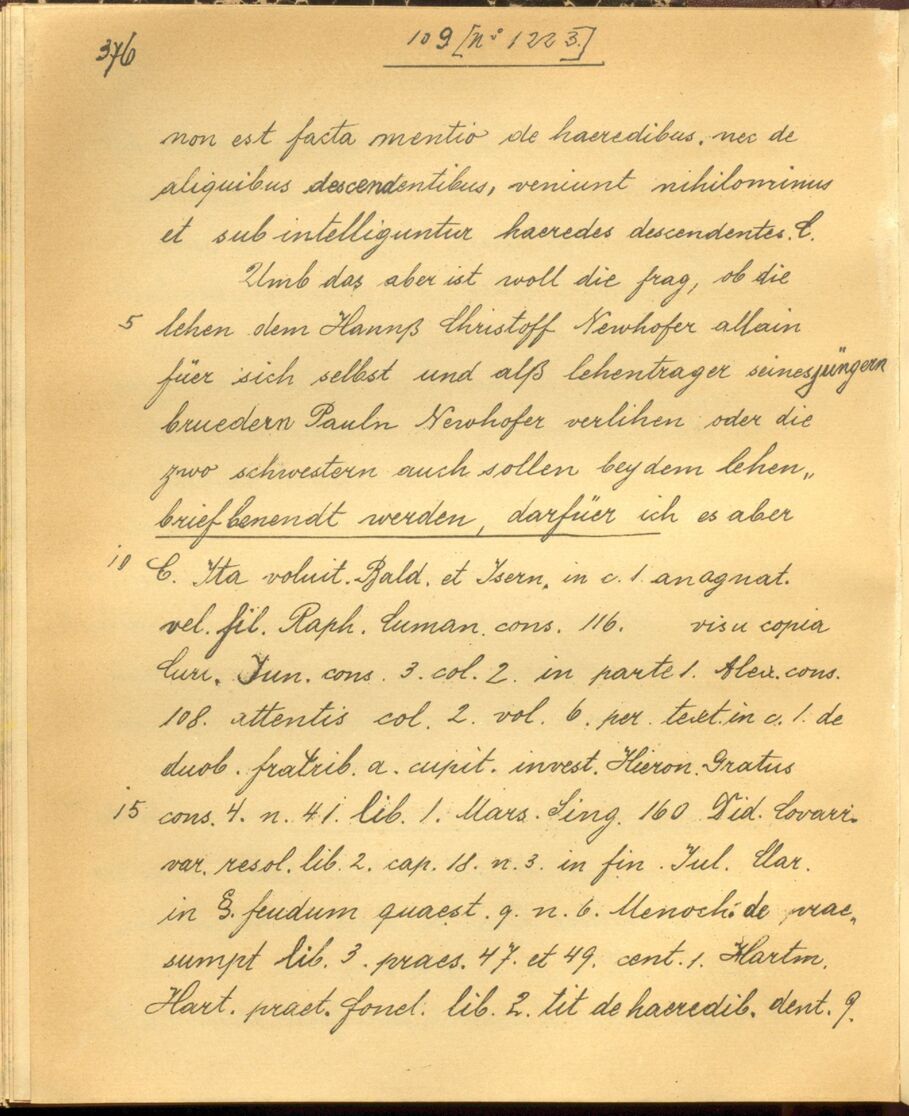 376
109 [N° 1223.]
non est facta mentio de haeredibus, nec de
aliquibus descendentibus, veniunt nihilominus
et sub intelliguntur haeredes descendentes. C.
Umb das aber ist woll die frag, ob die
5 lehen dem Hannß Christoff Newhofer allain
füer sich selbst und alß lehentrager seines jüngern
bruedern Pauln Newhofer verlihen oder die
zwo schwestern auch sollen bey dem lehen„
brief benendt werden, darfüer ich es aber
10 C. Ita voluit. Bald. et Isern. in c. 1. an agnat.
vel. fil. Raph. Cuman. cons. 116. visu copia
Curr. Jun. cons. 3. col. 2. in parte 1. Alex. cons.
108. attentis col. 2. vol. 6. per. text. in c. 1. de
duob. fratrib. a. cupit. invest. Hieron. Gratus
15 cons. 4. n. 41. lib. 1. Mars. Sing. 160 Did. Covarr.
var. resol. lib. 2. cap. 18. n. 3. in fin. Jul. Clar.
in §. feudum quaest. 9. n. 6. Menoch. de prae„
sumpt lib. 3. praes. 47. et 49. cent. 1. Hartm.
Hart. pract. lib. 2. tit de haeredib. dent. 9.